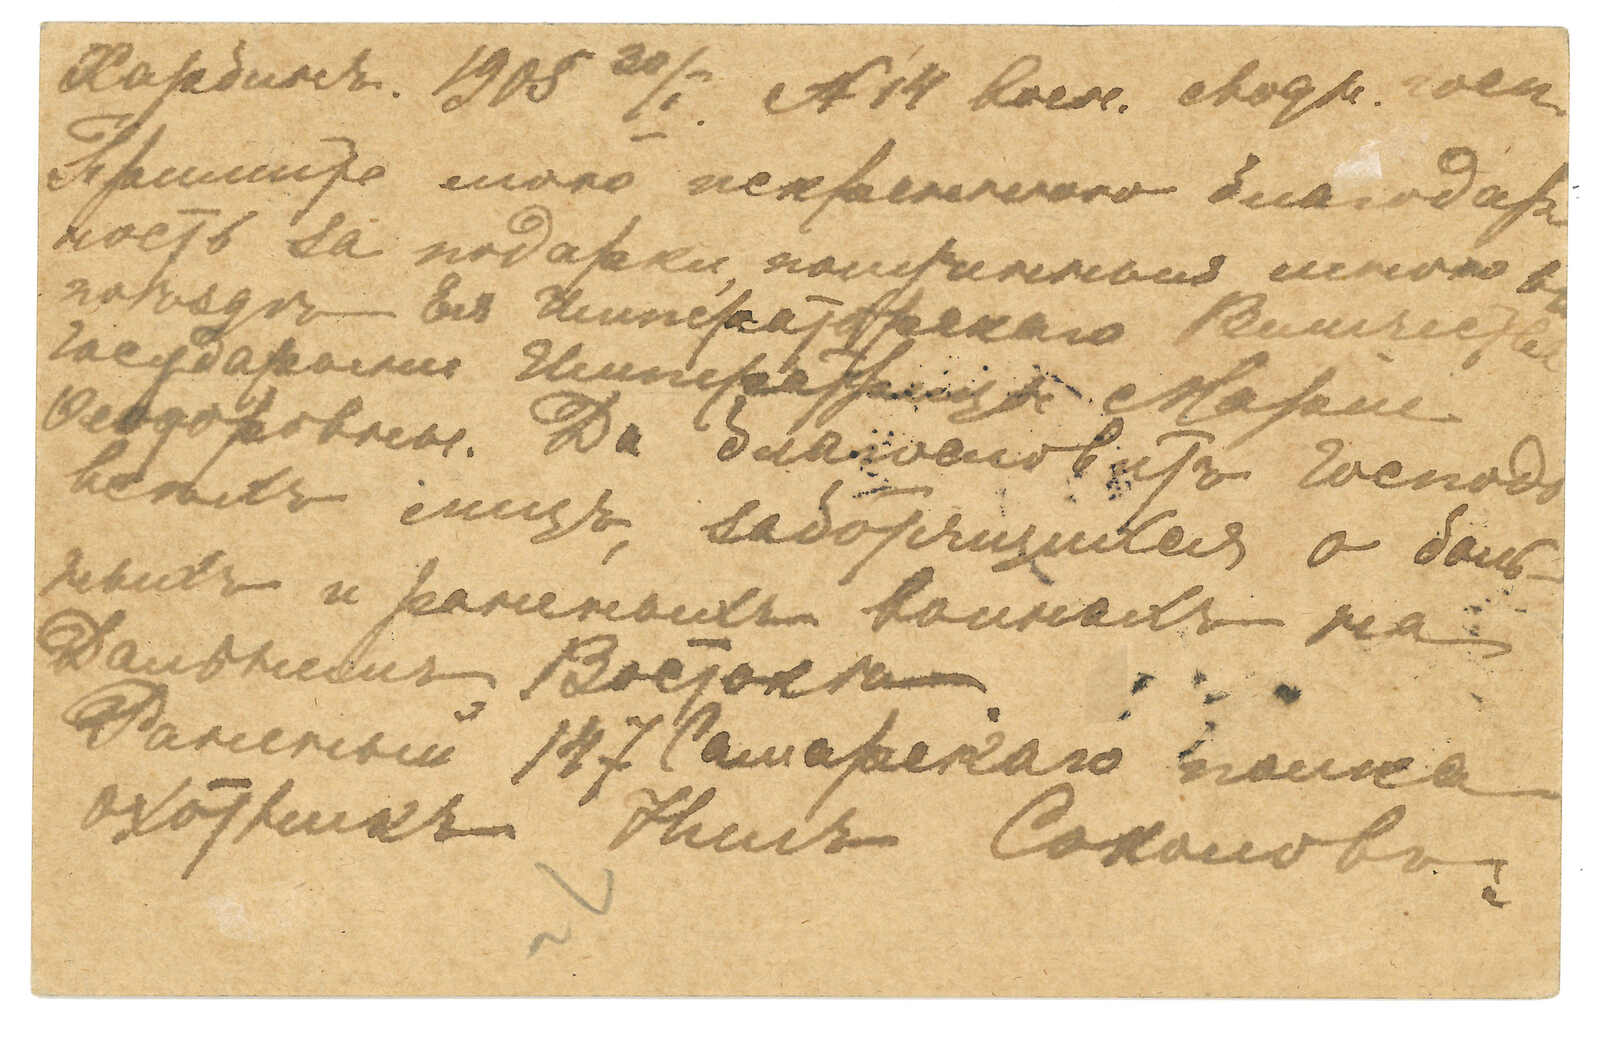 Харбинъ. 1905 20/I. №14 воен. сводн. госп.
Примите мою искреннюю благодар
ность за подарки, полученныя мною въ
поѣздѣ Ея Императорскаго Величества
Государыни Императрицы Маріи
Ѳеодоровны. Да благословитъ Господь
всѣхъ лицъ, заботящихся о боль-
ныхъ и раненыхъ воинахъ на
Дальнемъ Востокѣ.
Раненый 147 Самарскаго полка
охотникъ Нилъ Соколовъ.